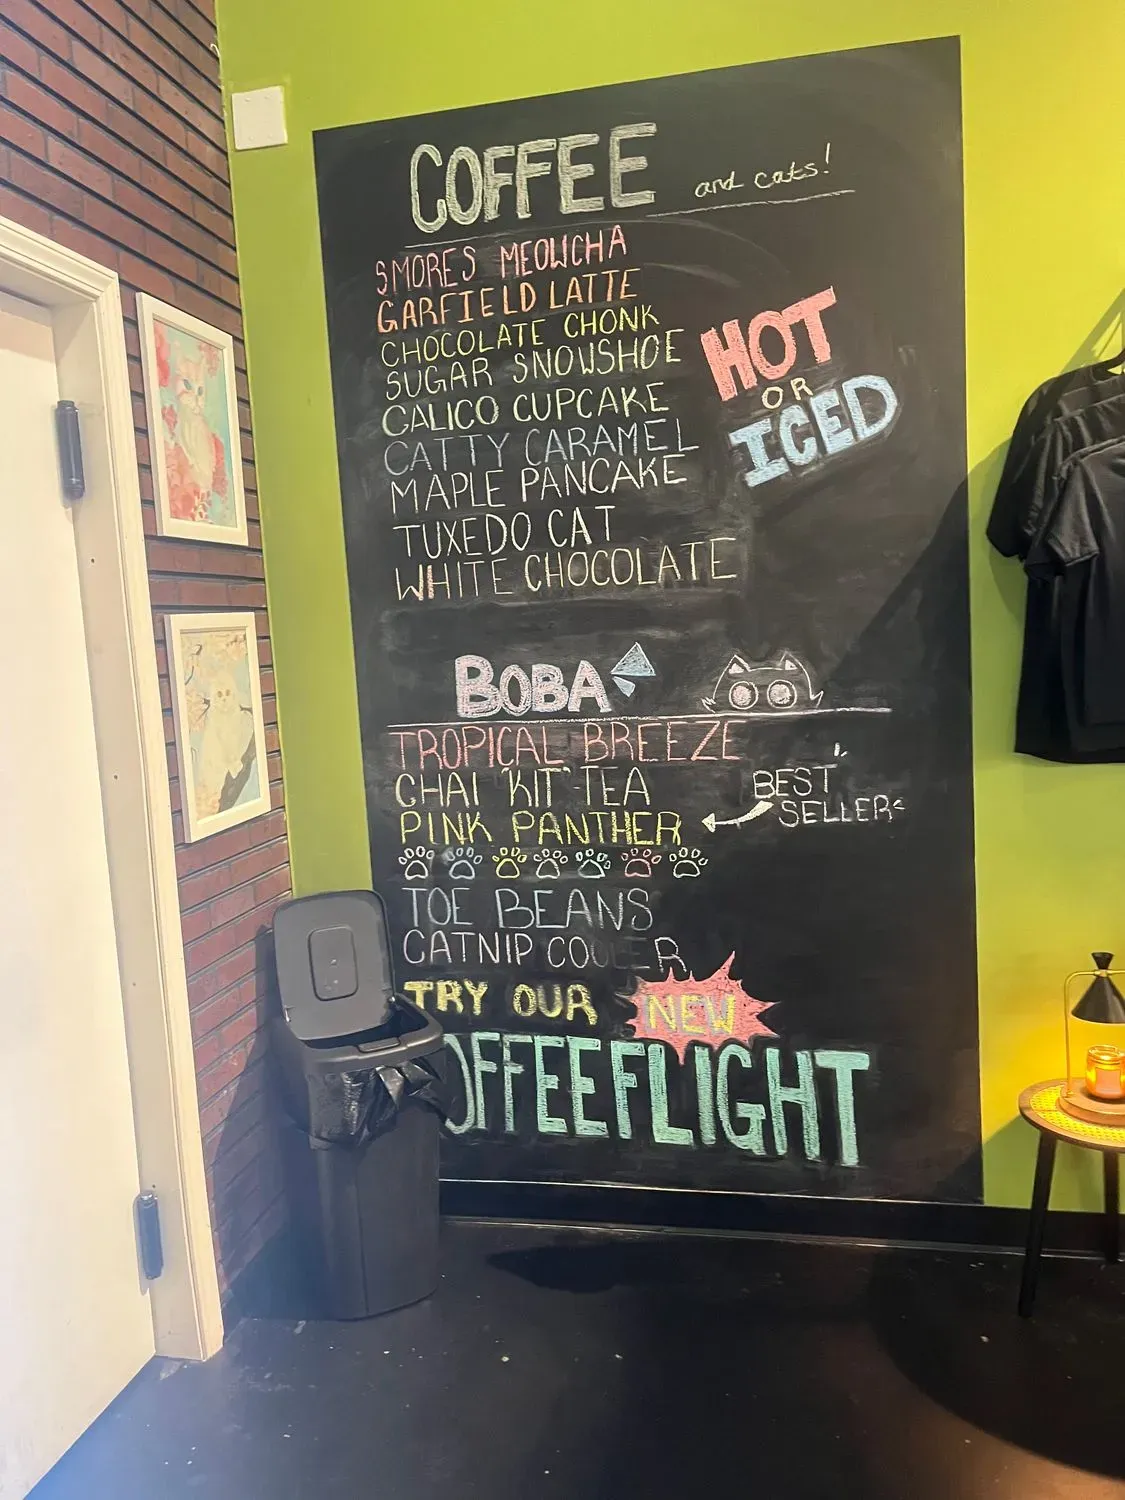 COFFEE and cats!
SMORES MEOWCHA
GARFIELD LATTE
CHOCOLATE CHONK
SUGAR SNOWSHOE
CALICO CUPCAKE
CATTY CARAMEL
MAPLE PANCAKE
TUXEDO CAT
WHITE CHOCOLATE
HOT
OR
ICED
BOBA
TROPICAL BREEZE
CHAI "KIT" TEA
PINK PANTHER
BEST
SELLER
TOE BEANS
CATNIP COOLER
TRY OUR NEW
OFFEE FLIGHT